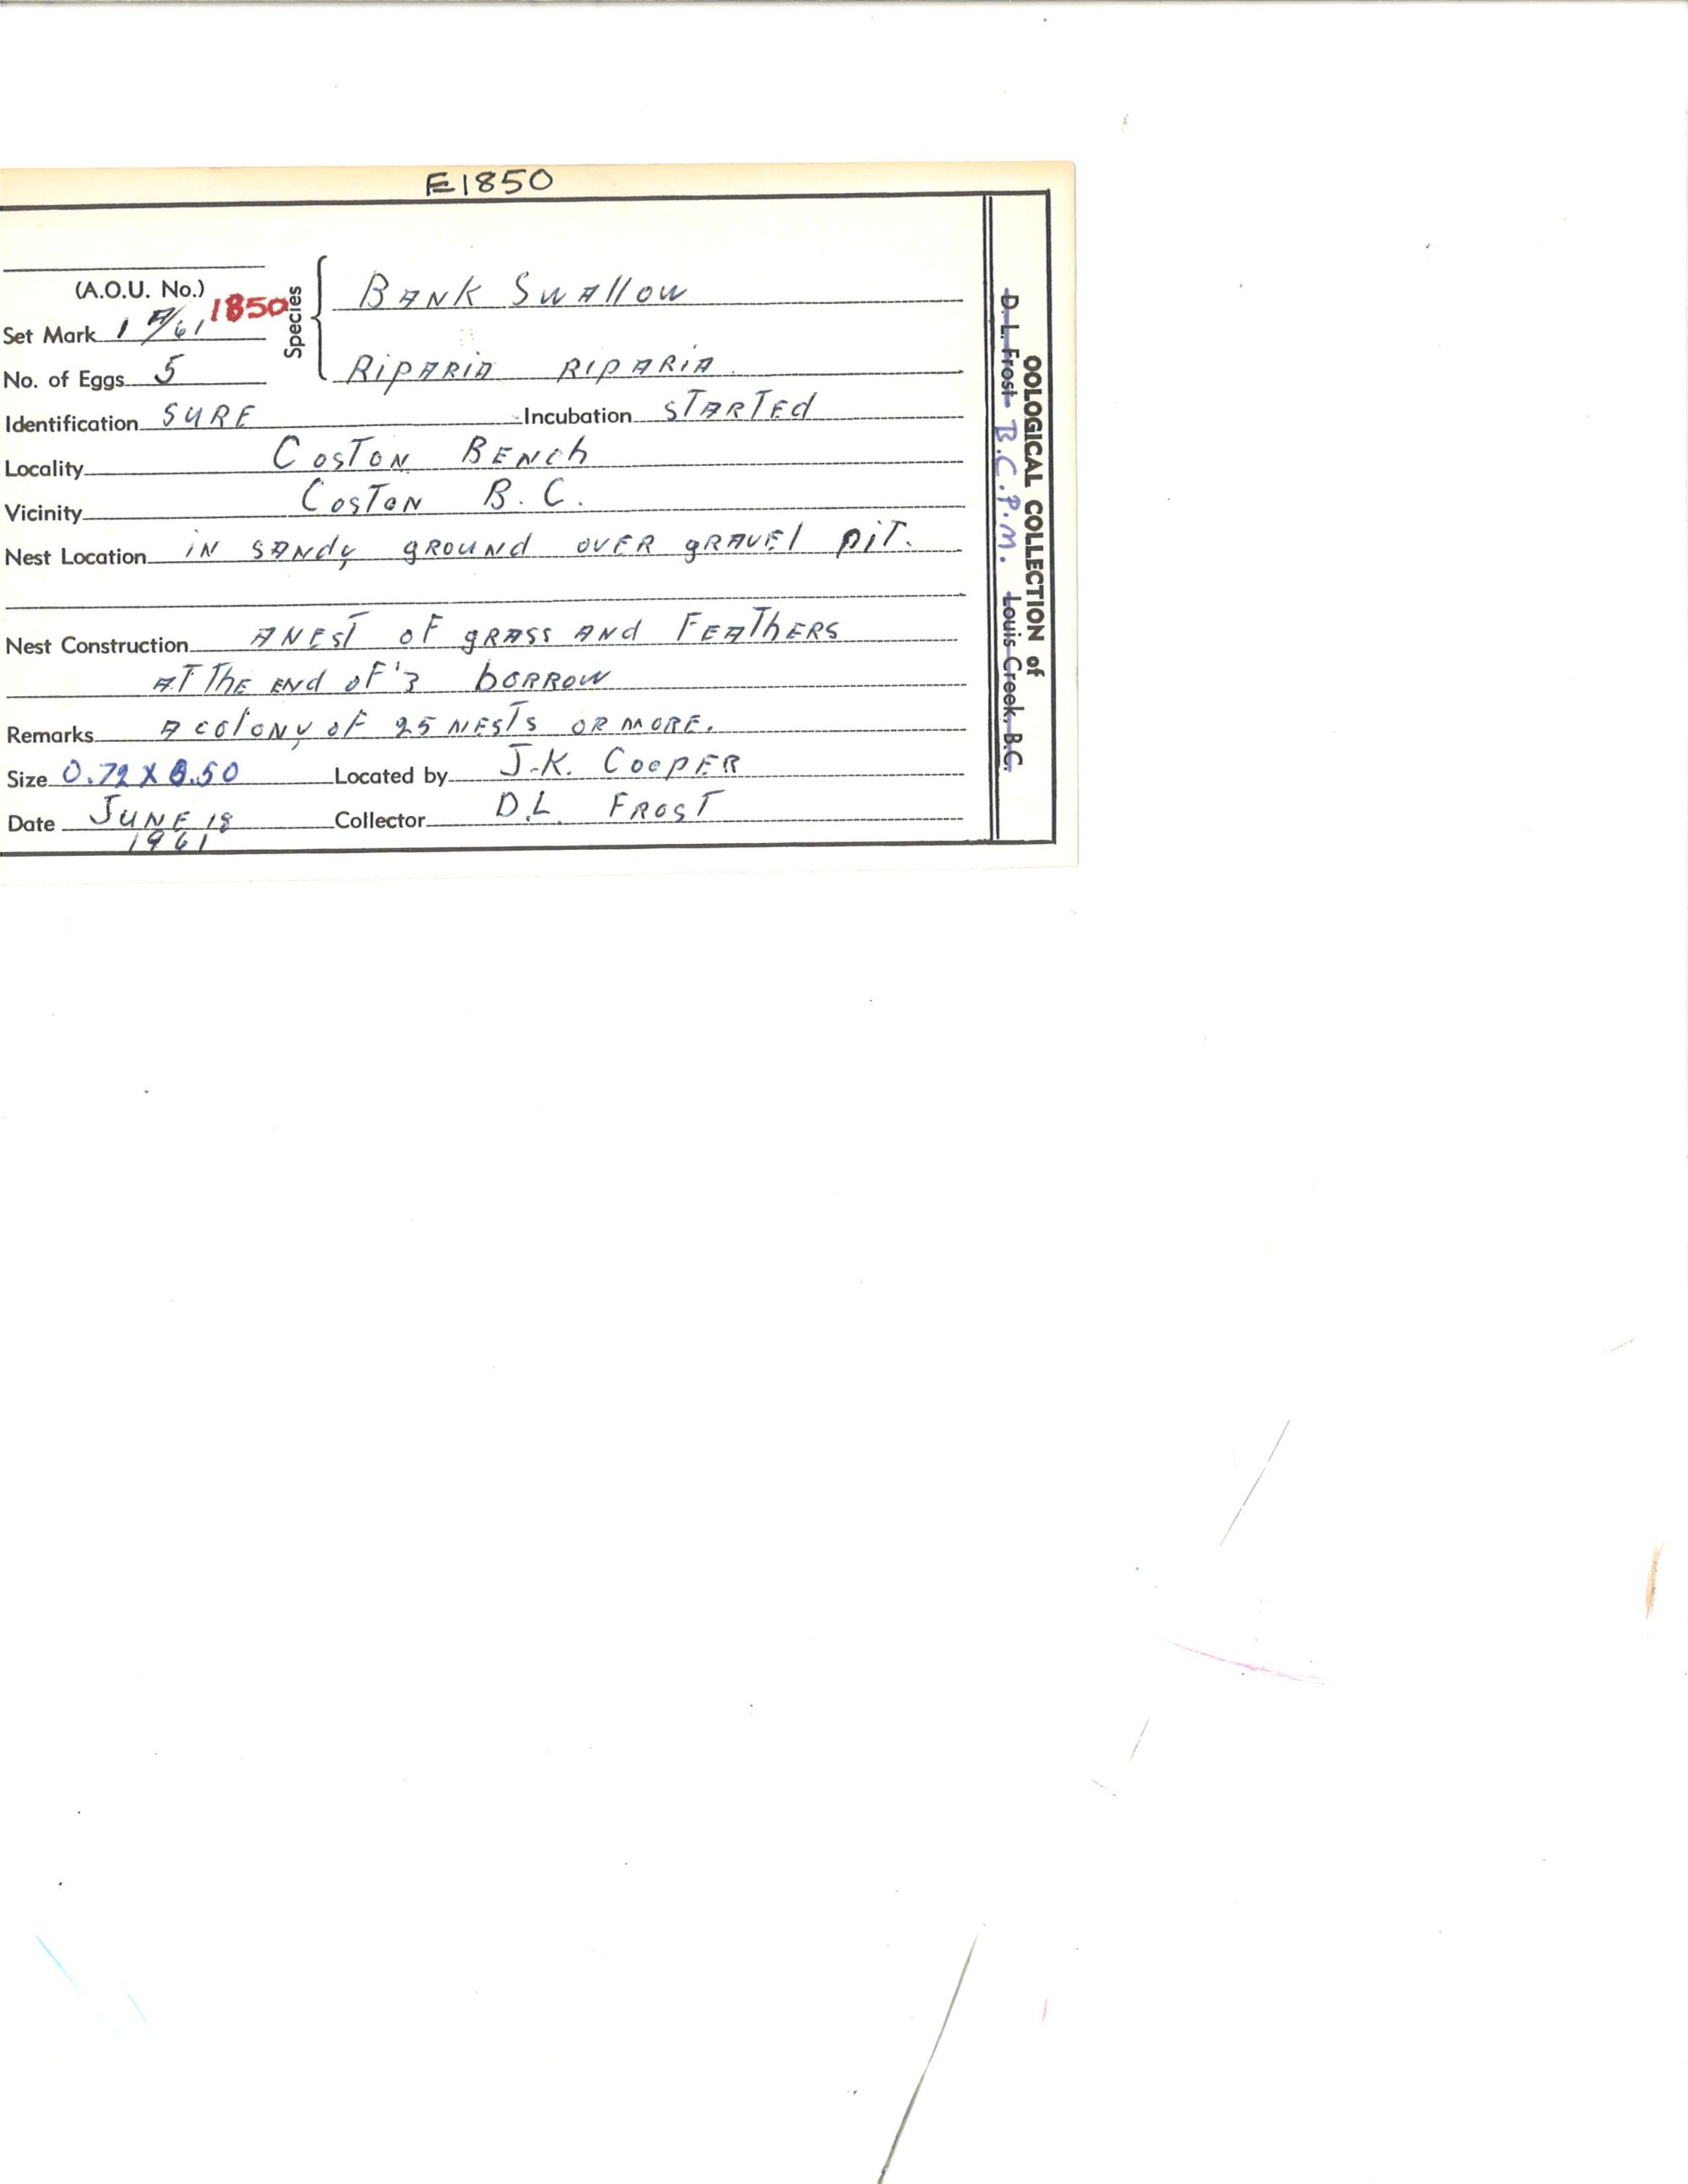 E1850
(A.O.U. No.)
1850
Set Mark 1 A/61
Species
BANK SWALLOW
No. of Eggs 5
RIPARIA RIPARIA
Identification SURE Incubation STARTED
Locality COSTON BENCH
Vicinity COSTON B.C.
Nest Location IN SANDY GROUND OVER GRAVEL PIT.
Nest Construction A NEST OF GRASS AND FEATHERS
AT THE END OF '3 BORROW
Remarks A COLONY OF 25 NESTS OR MORE.
Size 0.72 X 0.50 Located by J.K. COOPER
Date JUNE 18 Collector D.L. FROST
1961
OOLOGICAL COLLECTION of
D. L. Frost B.C.P.M. Louis Creek, B.C.